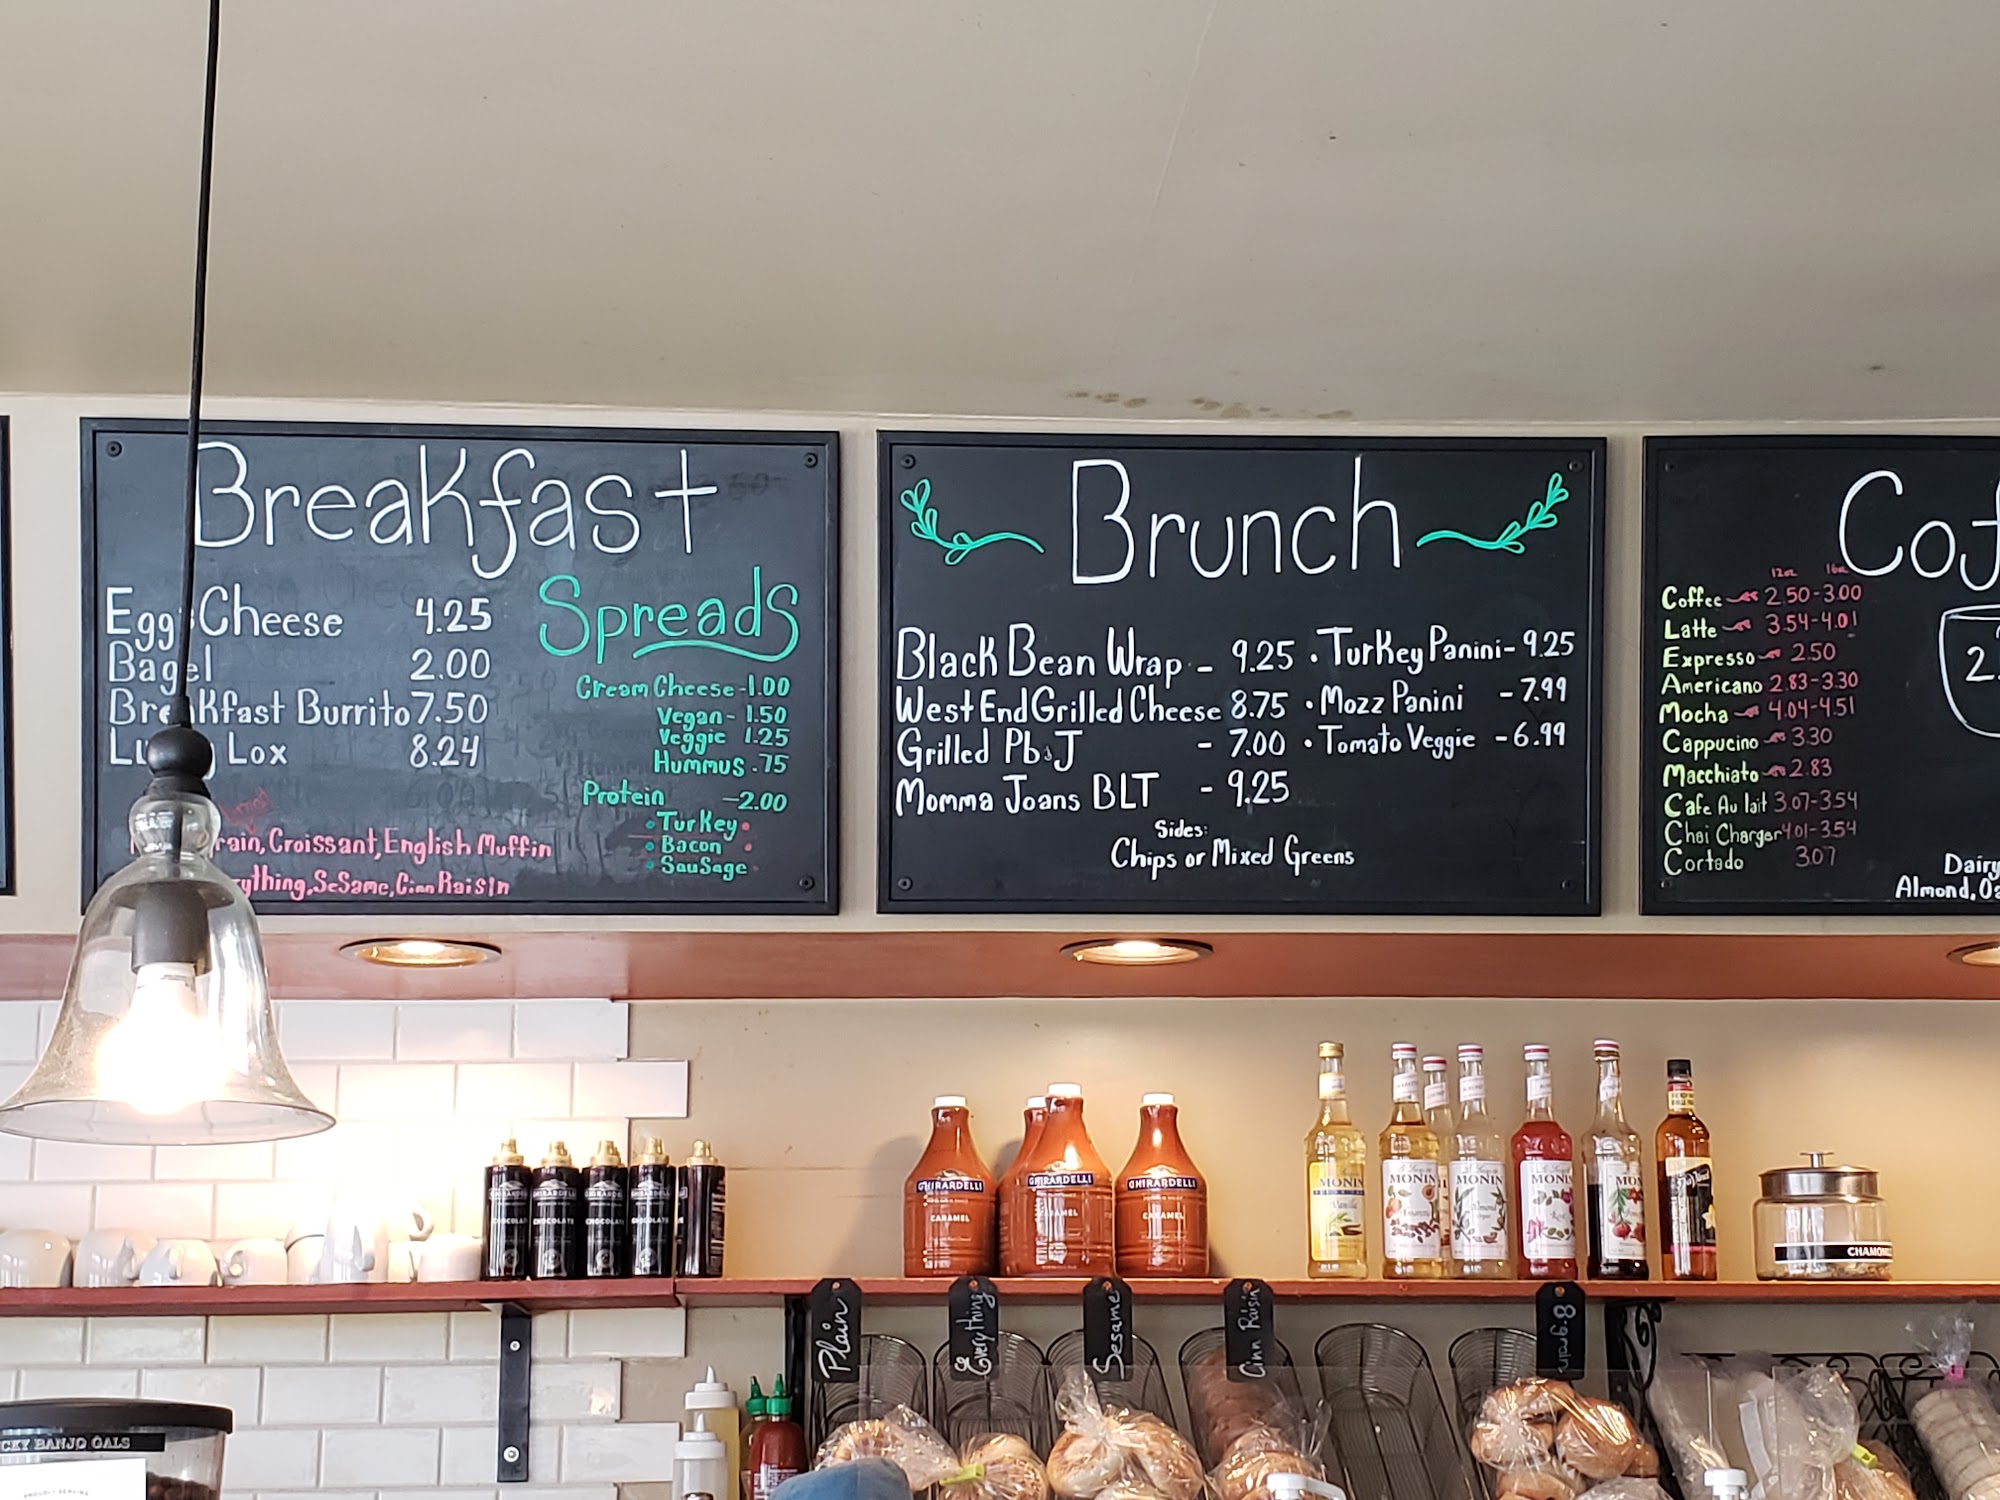 Breakfast
Egg & Cheese 4.25
Bagel 2.00
Breakfast Burrito 7.50
Lox 8.24
Croissant, English Muffin
SeSame, Cinn RaisIn
Spreads
Cream Cheese - 1.00
Vegan - 1.50
Veggie 1.25
Hummus .75
Protein - 2.00
• Turkey •
• Bacon •
• SauSage
Brunch
Black Bean Wrap - 9.25
West End Grilled Cheese 8.75
Grilled Pb&J - 7.00
Momma Joans BLT - 9.25
• Turkey Panini - 9.25
• Mozz Panini - 7.99
• Tomato Veggie - 6.99
Sides:
Chips or Mixed Greens
12oz 16oz
Coffee 2.50-3.00
Latte 3.54-4.01
Expresso 2.50
Americano 2.83-3.30
Mocha 4.04-4.51
Cappucino 3.30
Macchiato 2.83
Cafe Au lait 3.07-3.54
Chai Charger 4.01-3.54
Cortado 3.07
Dairy
Almond,
GHIRARDELLI
CHOCOLATE
GHIRARDELLI
CARAMEL
GHIRARDELLI
CARAMEL
GHIRARDELLI
CARAMEL
MONIN
Vanilla
MONIN
MONIN
Almond
MONIN
Rose
MONIN
Plain
Everything
Sesame
Cinn Raisin
8 grain
BANJO GALS
PROUDLY SERVING